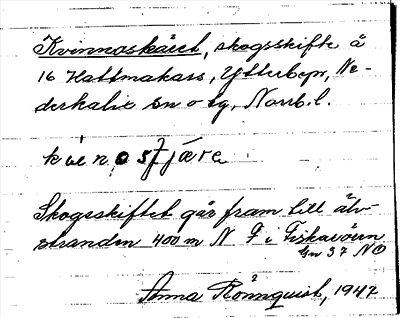 Kvinnoskäret, skogsskifte å
16 Hattmakars, Ytterbyn, Ne-
derkalix sn o tg, Norrb. l.
Skogsskiftet går fram till älv-
stranden 400 m N F i Fiskaviken
Gn 37 NO
Anna Rönnquist, 1947